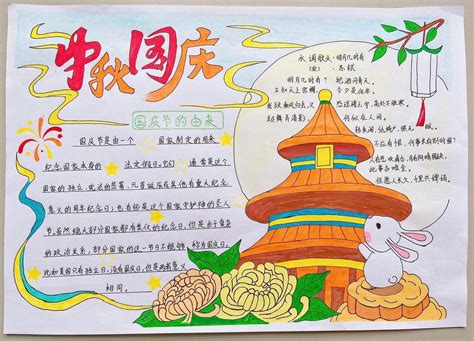 中秋国庆
国庆节的由来
国庆节是由一个 国家制定的用来
纪念国家本身的 法定假日,它们 通常是这个
国家的独立、宪法的签署、元首诞辰或其他有重大纪念
意义的周年纪念日,也有些是这个国家守护神的圣人
节,虽然绝大部分国家都有类似的纪念日,但是由于复杂
的政治关系,部分国家的这一节日不能够 称为国庆日,
比如美国只有独立日,没有国庆日,但是两者意义
相同。
水调歌头·明月几时有
(宋) 苏轼
明月几时有? 把酒问青天。
不知天上宫阙, 今夕是何年。
我欲乘风归去, 恐琼楼玉宇, 高处不胜寒。
起舞弄清影, 何似在人间。
转朱阁,低绮户,照无眠。
不应有恨,何事长向别时圆?
人有悲欢离合,月有阴晴圆缺,
此事古难全。
但愿人长久,千里共婵娟。